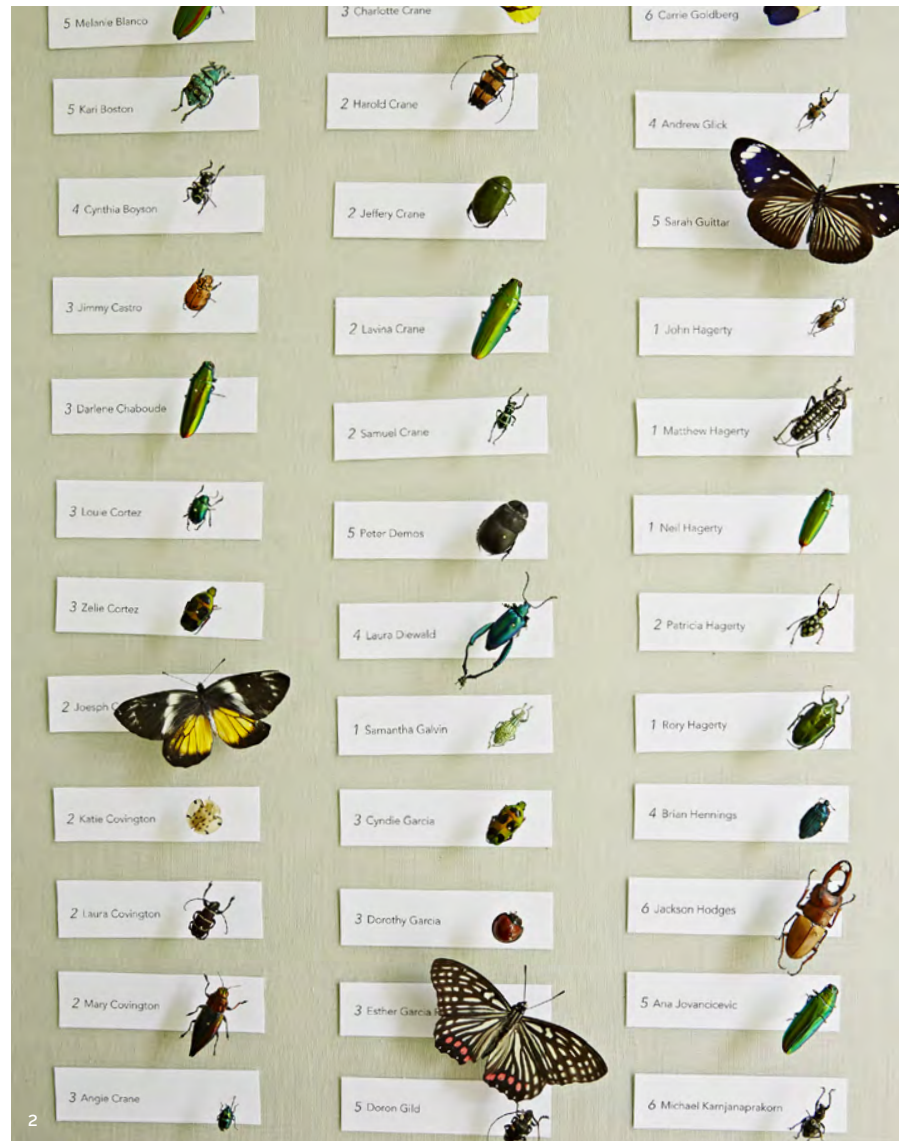 5 Melanie Blanco
5 Kari Boston
4 Cynthia Boyson
3 Jimmy Castro
3 Darlene Chaboude
3 Louie Cortez
3 Zelie Cortez
2 Joesph
2 Katie Covington
2 Laura Covington
2 Mary Covington
3 Angie Crane
3 Charlotte Crane
2 Harold Crane
2 Jeffery Crane
2 Lavina Crane
2 Samuel Crane
5 Peter Demos
4 Laura Diewald
1 Samantha Galvin
3 Cyndie Garcia
3 Dorothy Garcia
3 Esther Garcia
5 Doron Gild
6 Carrie Goldberg
4 Andrew Glick
5 Sarah Guittar
1 John Hagerty
1 Matthew Hagerty
1 Neil Hagerty
2 Patricia Hagerty
1 Rory Hagerty
4 Brian Hennings
6 Jackson Hodges
5 Ana Jovancicevic
6 Michael Karnjanaprakorn
2